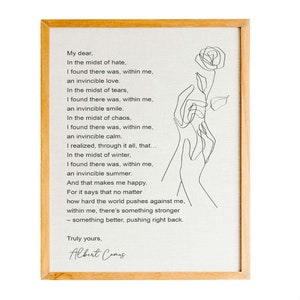 My dear,
In the midst of hate,
I found there was, within me,
an invincible love.
In the midst of tears,
I found there was, within me,
an invincible smile.
In the midst of chaos,
I found there was, within me,
an invincible calm.
I realized, through it all, that...
In the midst of winter,
I found there was, within me,
an invincible summer.
And that makes me happy.
For it says that no matter
how hard the world pushes against me,
within me, there's something stronger
– something better, pushing right back.
Truly yours,
Albert Camus